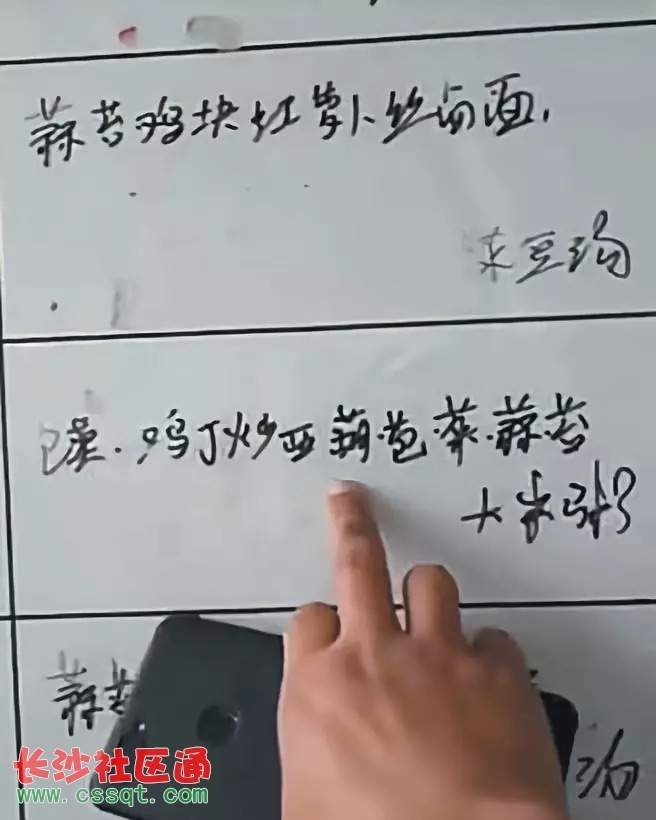 蒜苔鸡块红萝卜丝卤面.
菜豆汤
鸡丁炒西葫.包菜.蒜苔
大米粥
蒜苔
汤
长沙社区通
www.cssqt.com